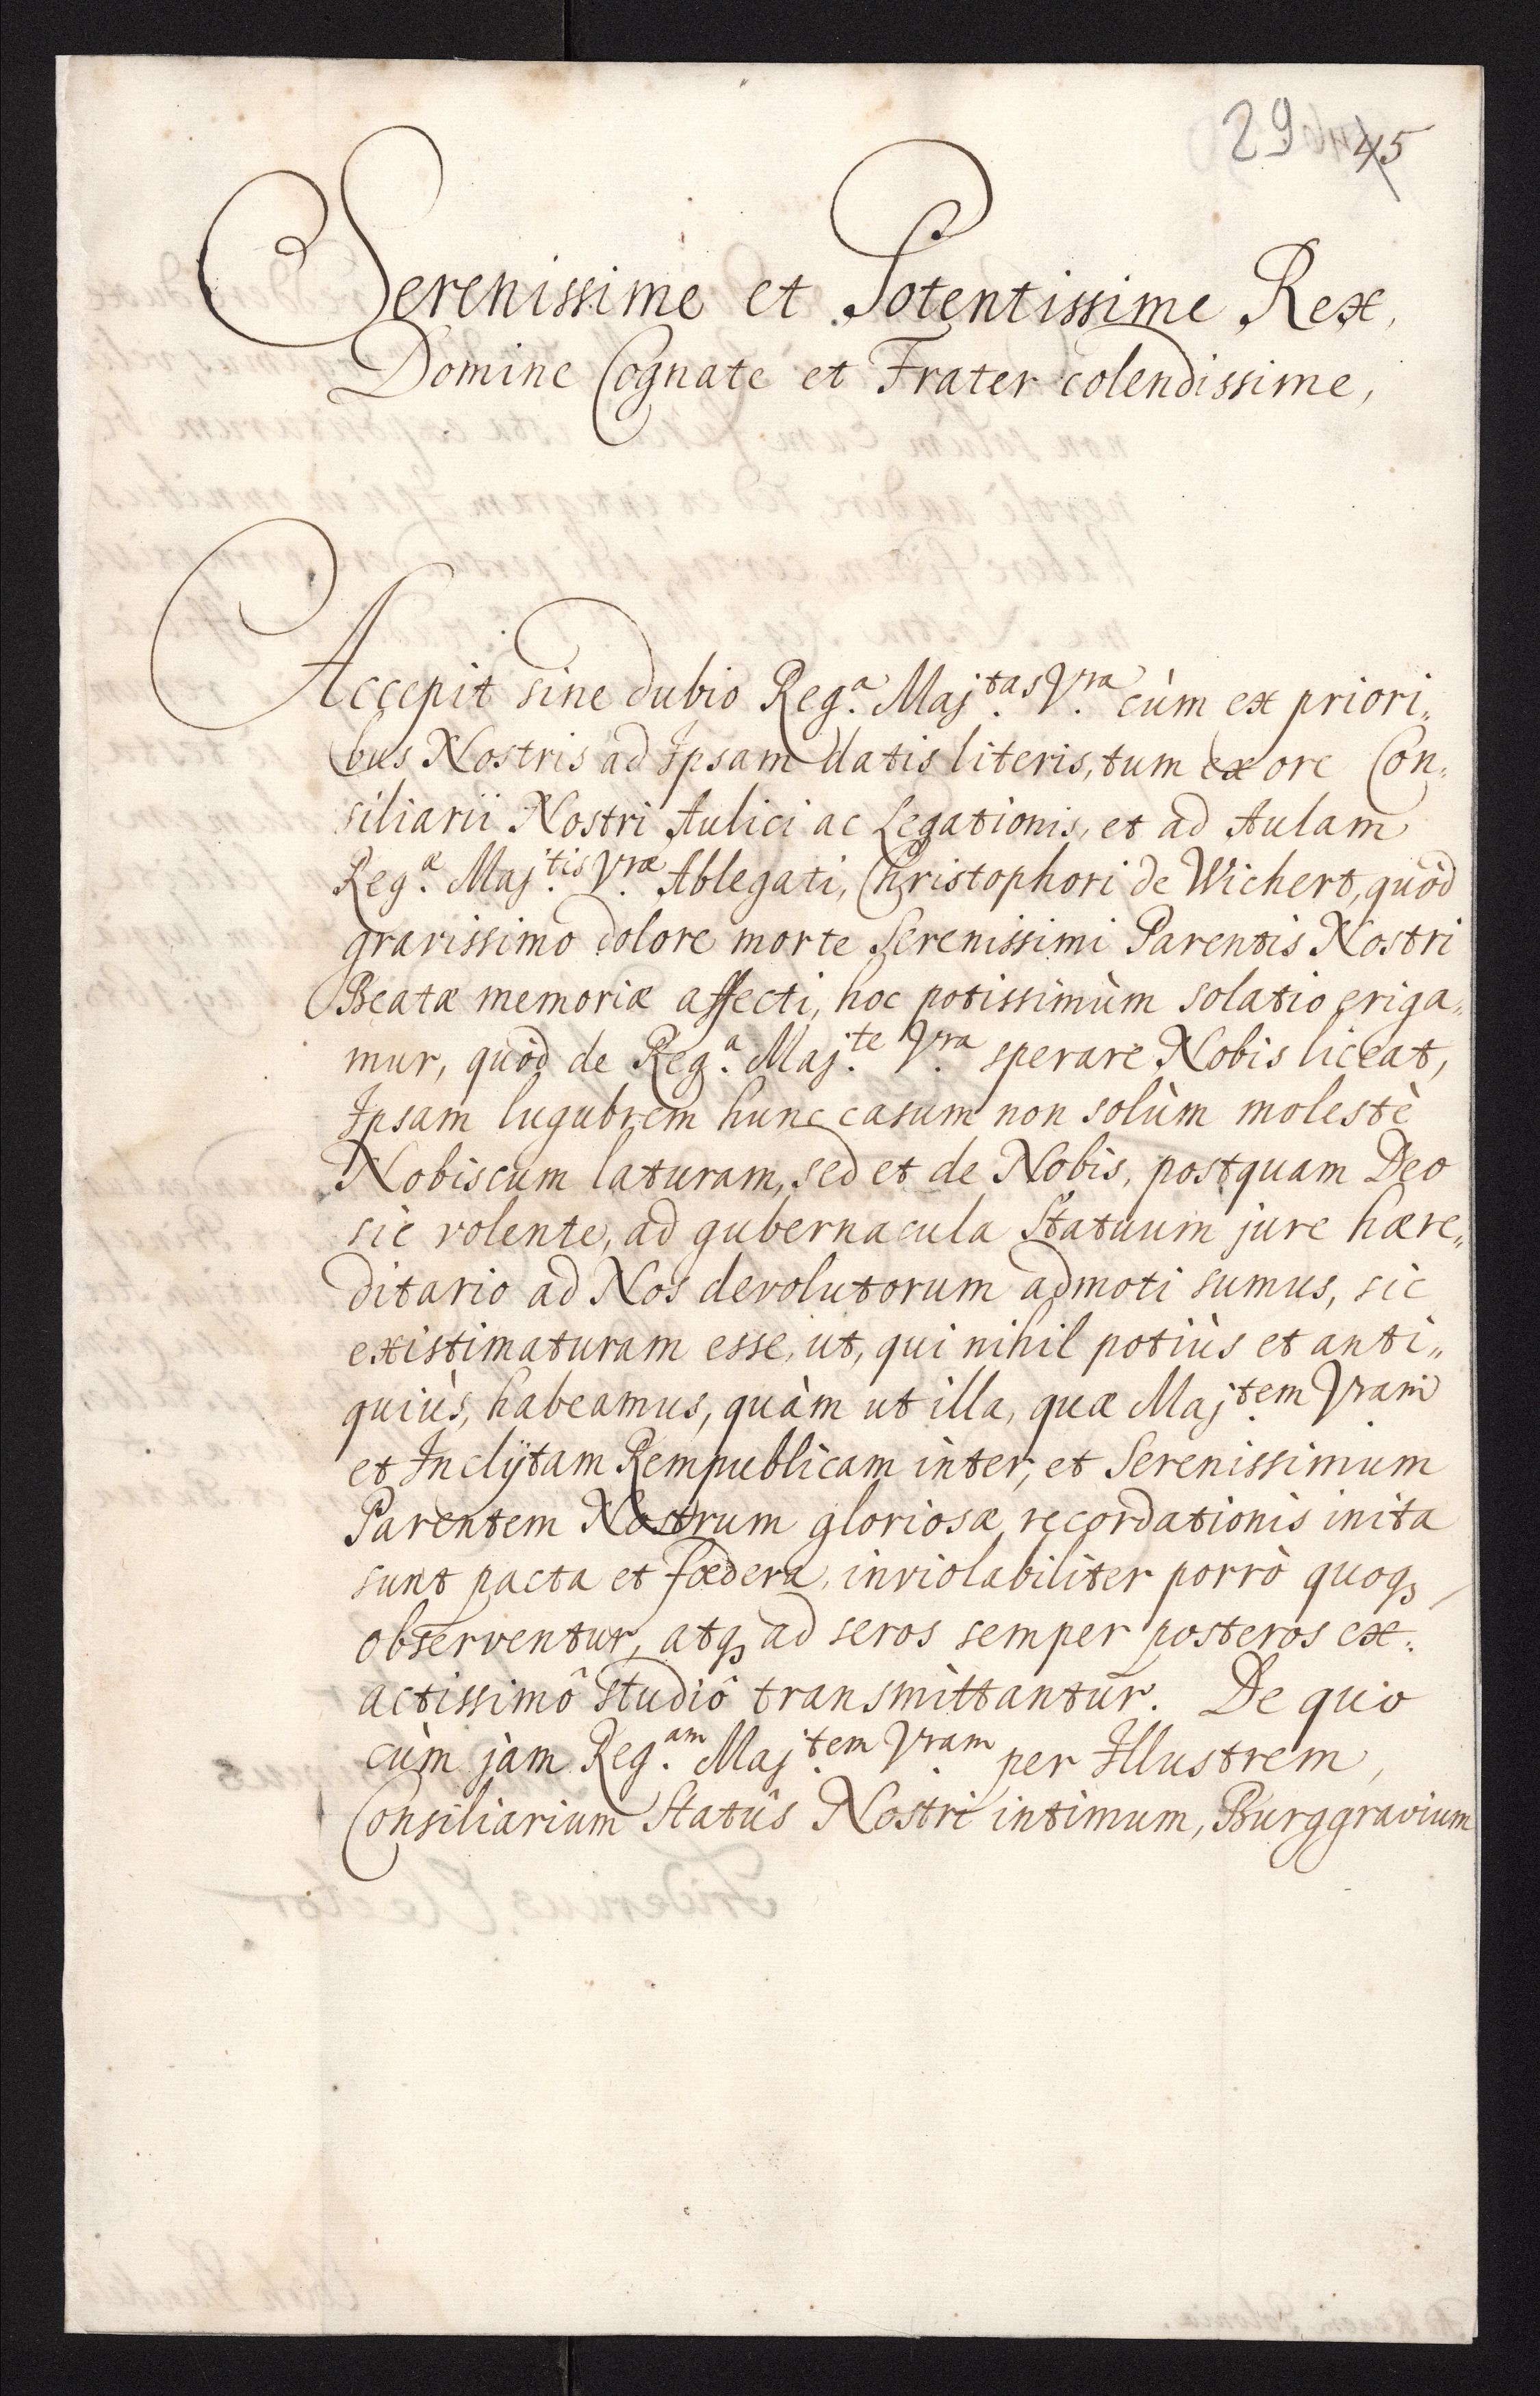 29 45
Serenissime et Potentissime Rex,
Domine Cognate et Frater colendissime,
Accepit sine dubio Reg.ª Maj.tas V.ra cùm ex priori„
bus Nostris ad Ipsam datis literis, tum ex ore Con„
siliarii Nostri Aulici ac Legationis, et ad Aulam
Reg.æ Maj.tis V.ræ Ablegati, Christophori de Wichert, quòd
gravissimo dolore morte Serenissimi Parentis Nostri
Beatæ memoriæ affecti, hoc potissimùm solatio eriga„
mur, quòd de Reg.ª Maj.te V.ra sperare Nobis liceat,
Ipsam lugubrem hunc casum non solùm molestè
Nobiscum laturam, sed et de Nobis, postquam Deo
sic volente, ad gubernacula Statuum jure hære„
ditario ad Nos devolutorum admoti sumus, sic
existimaturam esse, ut, qui nihil potiùs et anti„
quiùs, habeamus, quàm ut illa, quæ Maj.tem Vram
et Inclÿtam Rempublicam inter, et Serenissimum
Parentem Nostrum gloriosæ recordationis inita
sunt pacta et fœdera, inviolabiliter porrò quoqꝫ
observentur, atqꝫ ad seros semper posteros ex„
actissimô studiô transmittantur. De quo
cùm jam Reg.am Maj.tem V.ram per Illustrem,
Consiliarium Statûs Nostri intimum, Burggravium